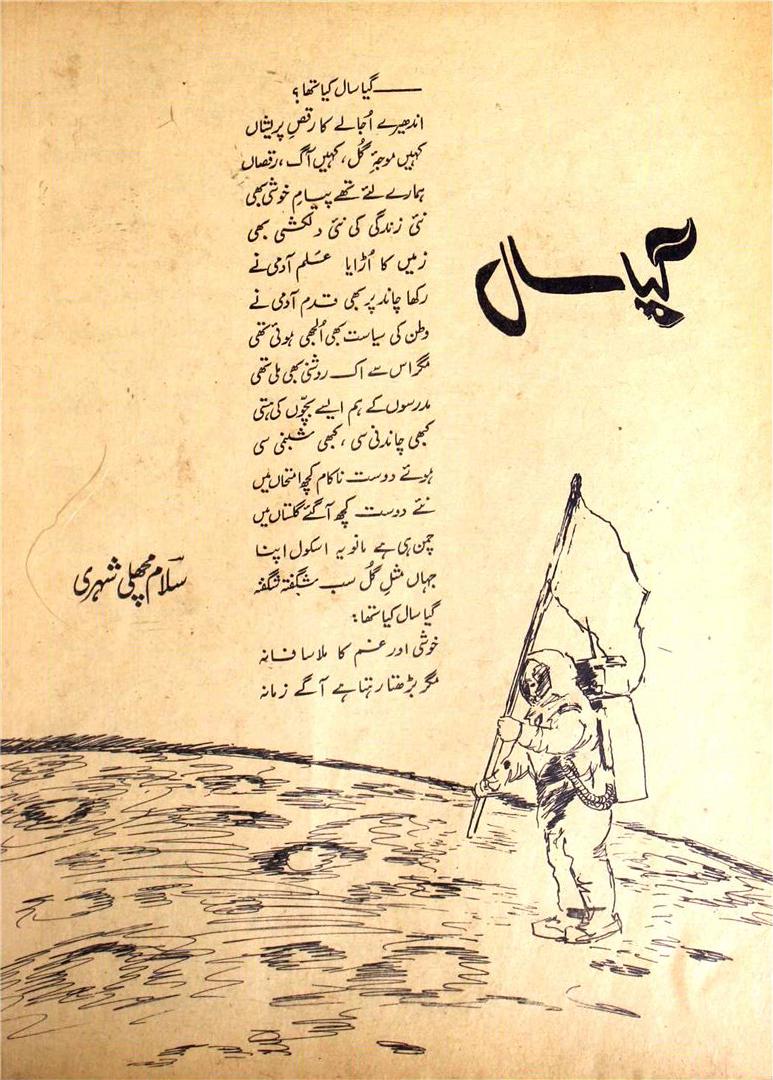 گیا سال
——گیا سال کیا تھا؟
اندھیرے اُجالے کا رقصِ پریشاں
کہیں موجۂ گُل، کہیں آگ، رقصاں
ہمارے لئے تھے پیامِ خوشی بھی
نئی زندگی کی نئی دلکشی بھی
زمیں کا اُڑایا عَلم آدمی نے
رکھا چاند پر بھی قدم آدمی نے
وطن کی سیاست بھی اُلجھی ہوئی تھی
مگر اس سے اک روشنی بھی ملی تھی
مدرسوں کے ہم ایسے بچّوں کی ہستی
کبھی چاندنی سی، کبھی شبنمی سی
ہوئے دوست ناکام کچھ امتحاں میں
نئے دوست کچھ آگئے گلستاں میں
چمن ہی ہے مانو یہ اسکول اپنا
جہاں مثلِ گُل سب شگفتہ شگفتہ
گیا سال کیا تھا:
خوشی اور غم کا ملا سا فسانہ
مگر بڑھتا رہتا ہے آگے زمانہ
سلام مچھلی شہری